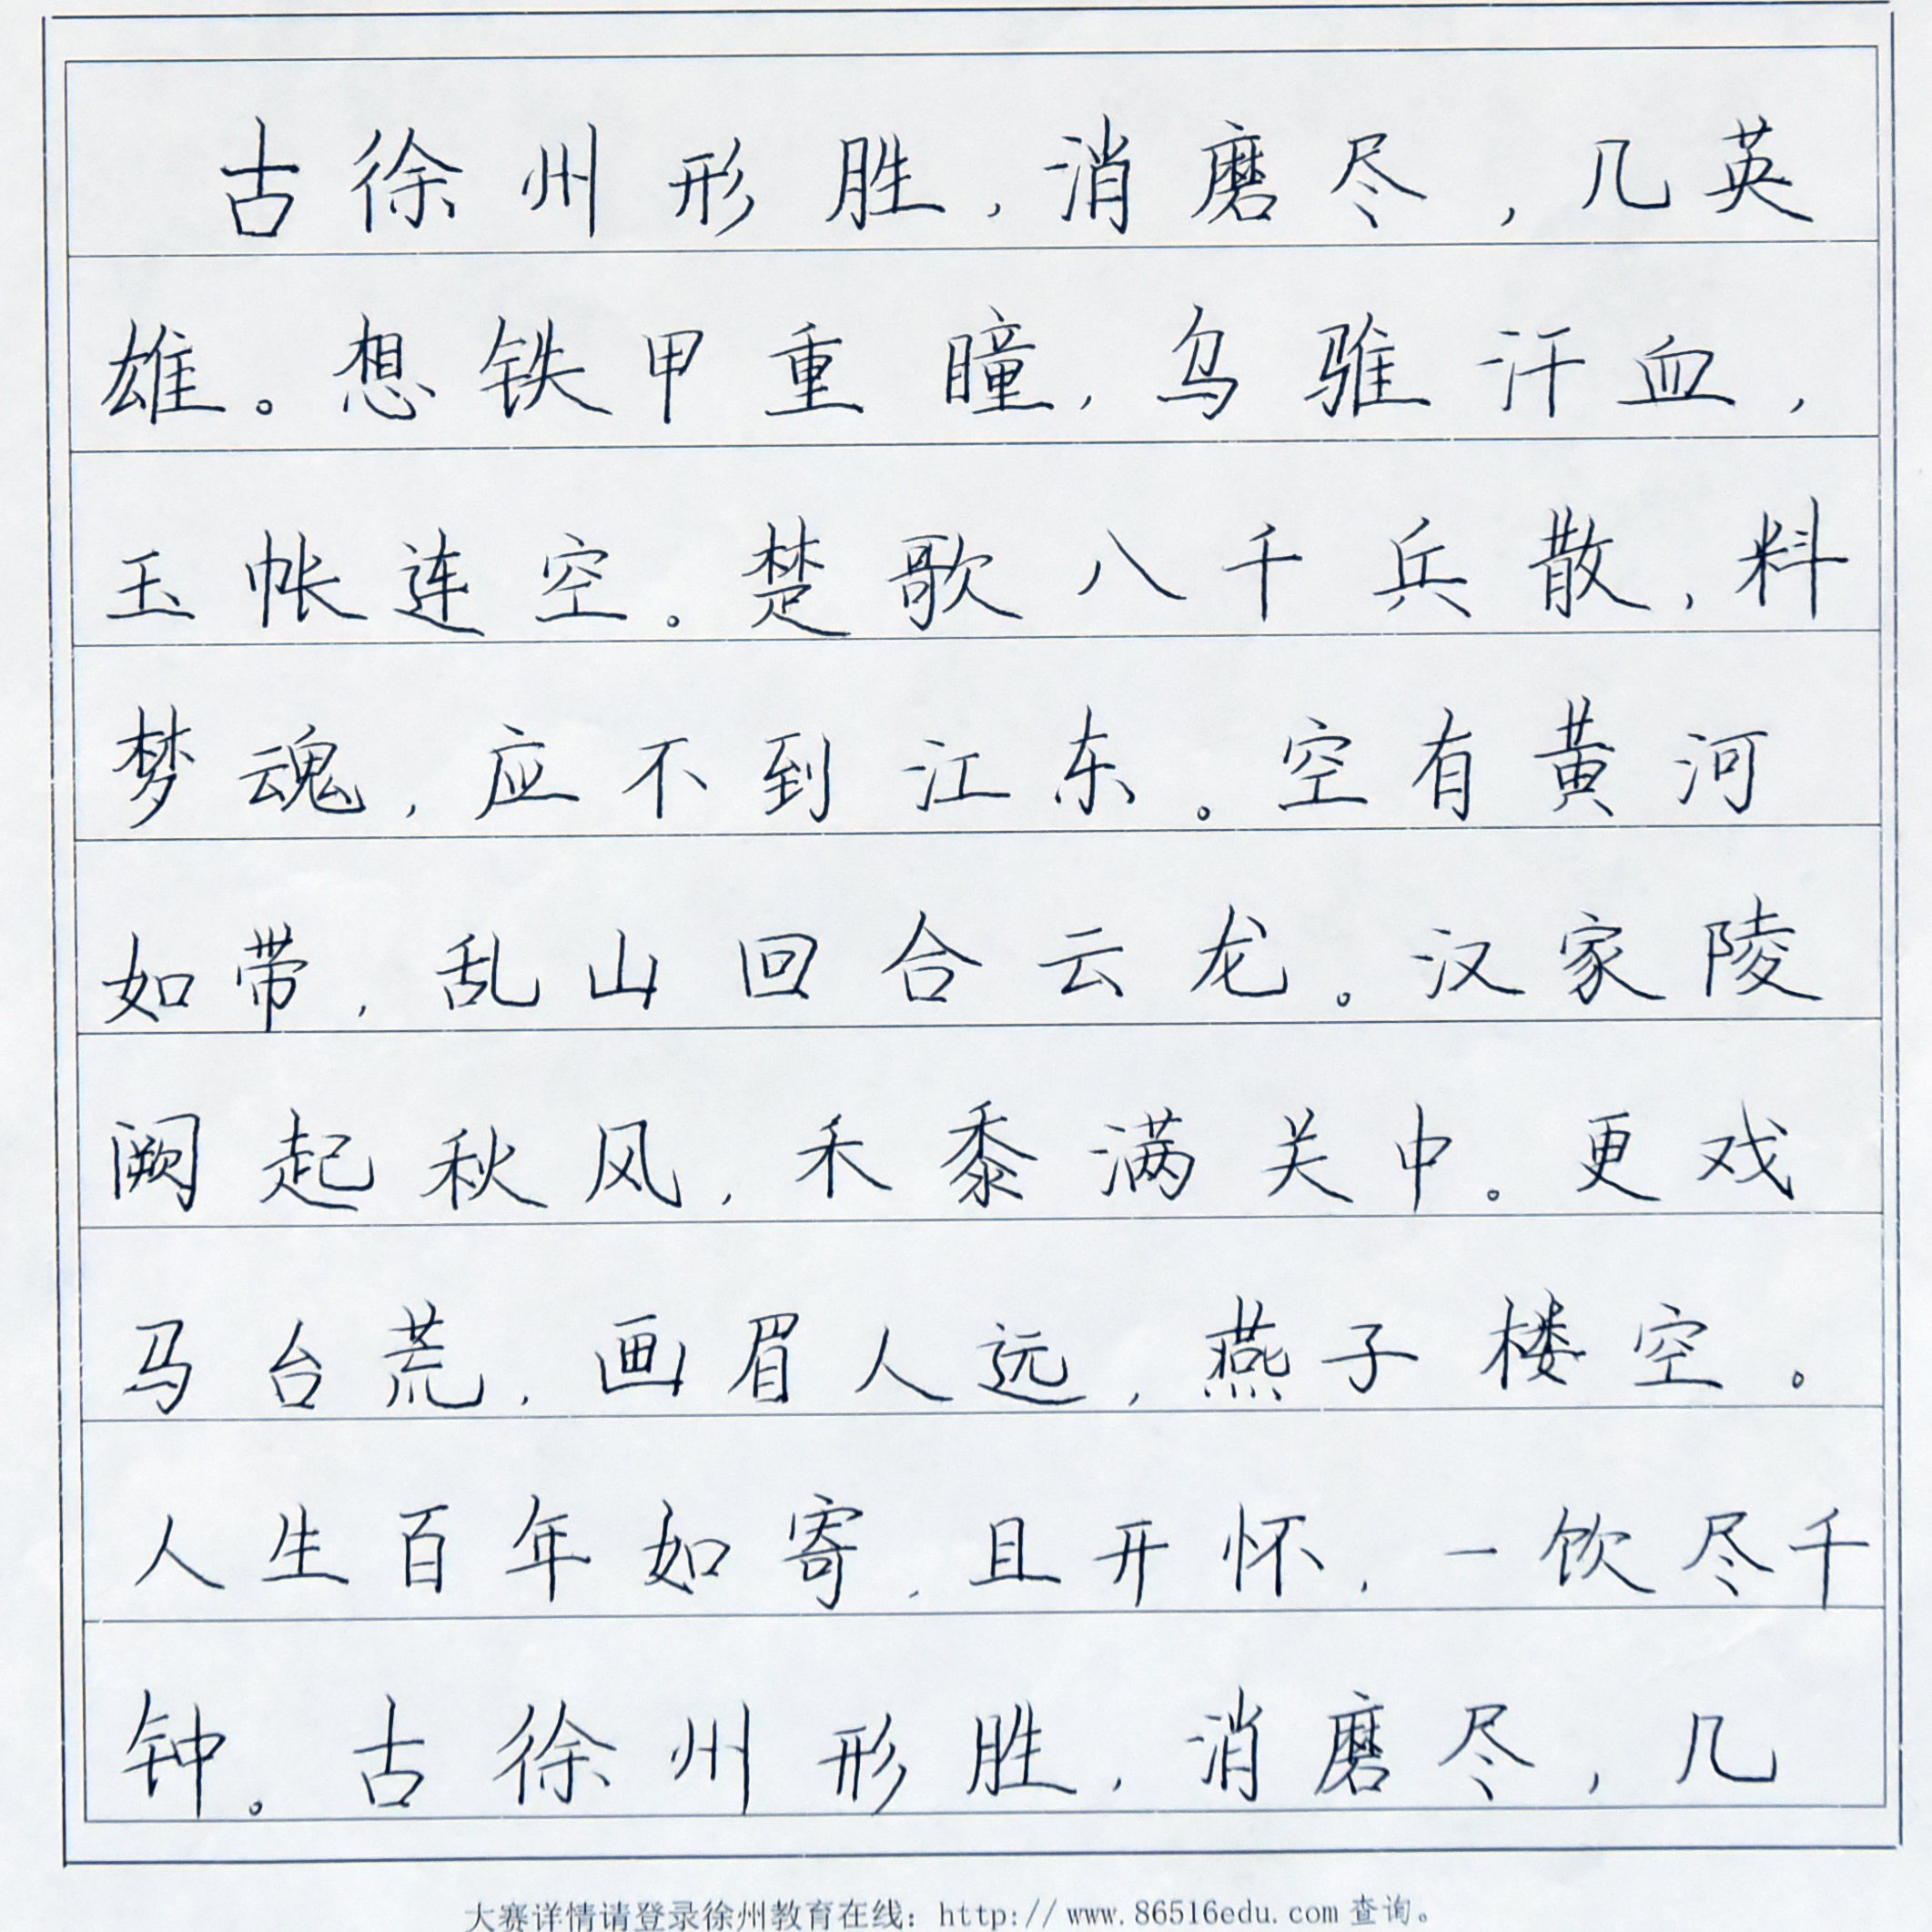 古徐州形胜，消磨尽，几英
雄。想铁甲重瞳，乌骓汗血，
玉帐连空。楚歌八千兵散，料
梦魂，应不到江东。空有黄河
如带，乱山回合云龙。汉家陵
阙起秋风，禾黍满关中。更戏
马台荒，画眉人远，燕子楼空。
人生百年如寄，且开怀，一饮尽千
钟。古徐州形胜，消磨尽，几
大赛详情请登录徐州教育在线：http://www.86516edu.com查询。